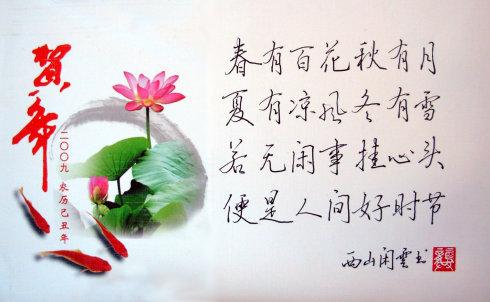 贺年
二〇〇九 农历己丑年
春有百花秋有月
夏有凉风冬有雪
若无闲事挂心头
便是人间好时节
西山闲雲书